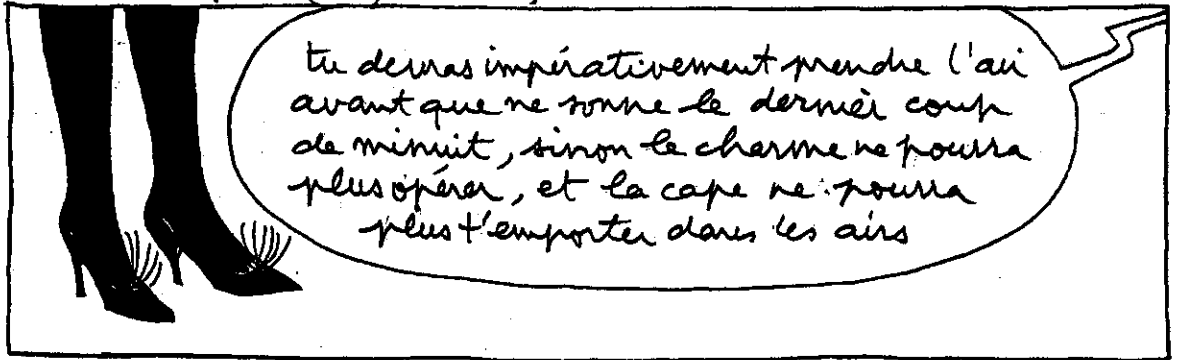 tu devras impérativement prendre l'air
avant que ne sonne le dernier coup
de minuit, sinon le charme ne pourra
plus opérer, et la cape ne pourra
plus t'emporter dans les airs